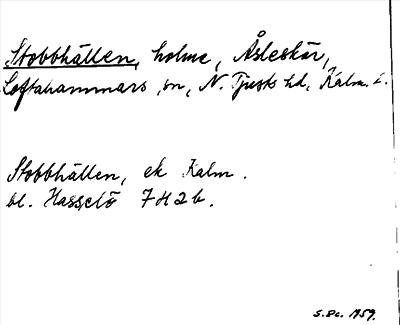 Stobbhällen, holme, Åsleskär,
Loftahammars sn, N. Tjusts hd, Kalm. l.
Stobbhällen, ek Kalm.
bl. Hasselö 7H2b.
S.Bc. 1959.